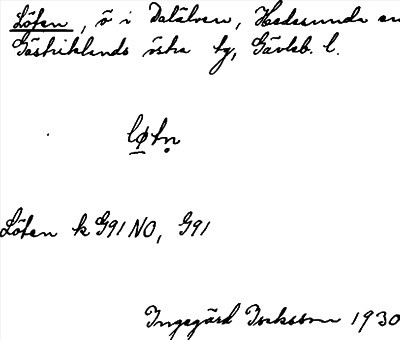 Löten, ö i Dalälven, Hedesunda sn
Gästriklands östra tg, Gävleb. l.
løtṇ
Löten k G91 NO, G91
Ingegärd Isaksson 1930